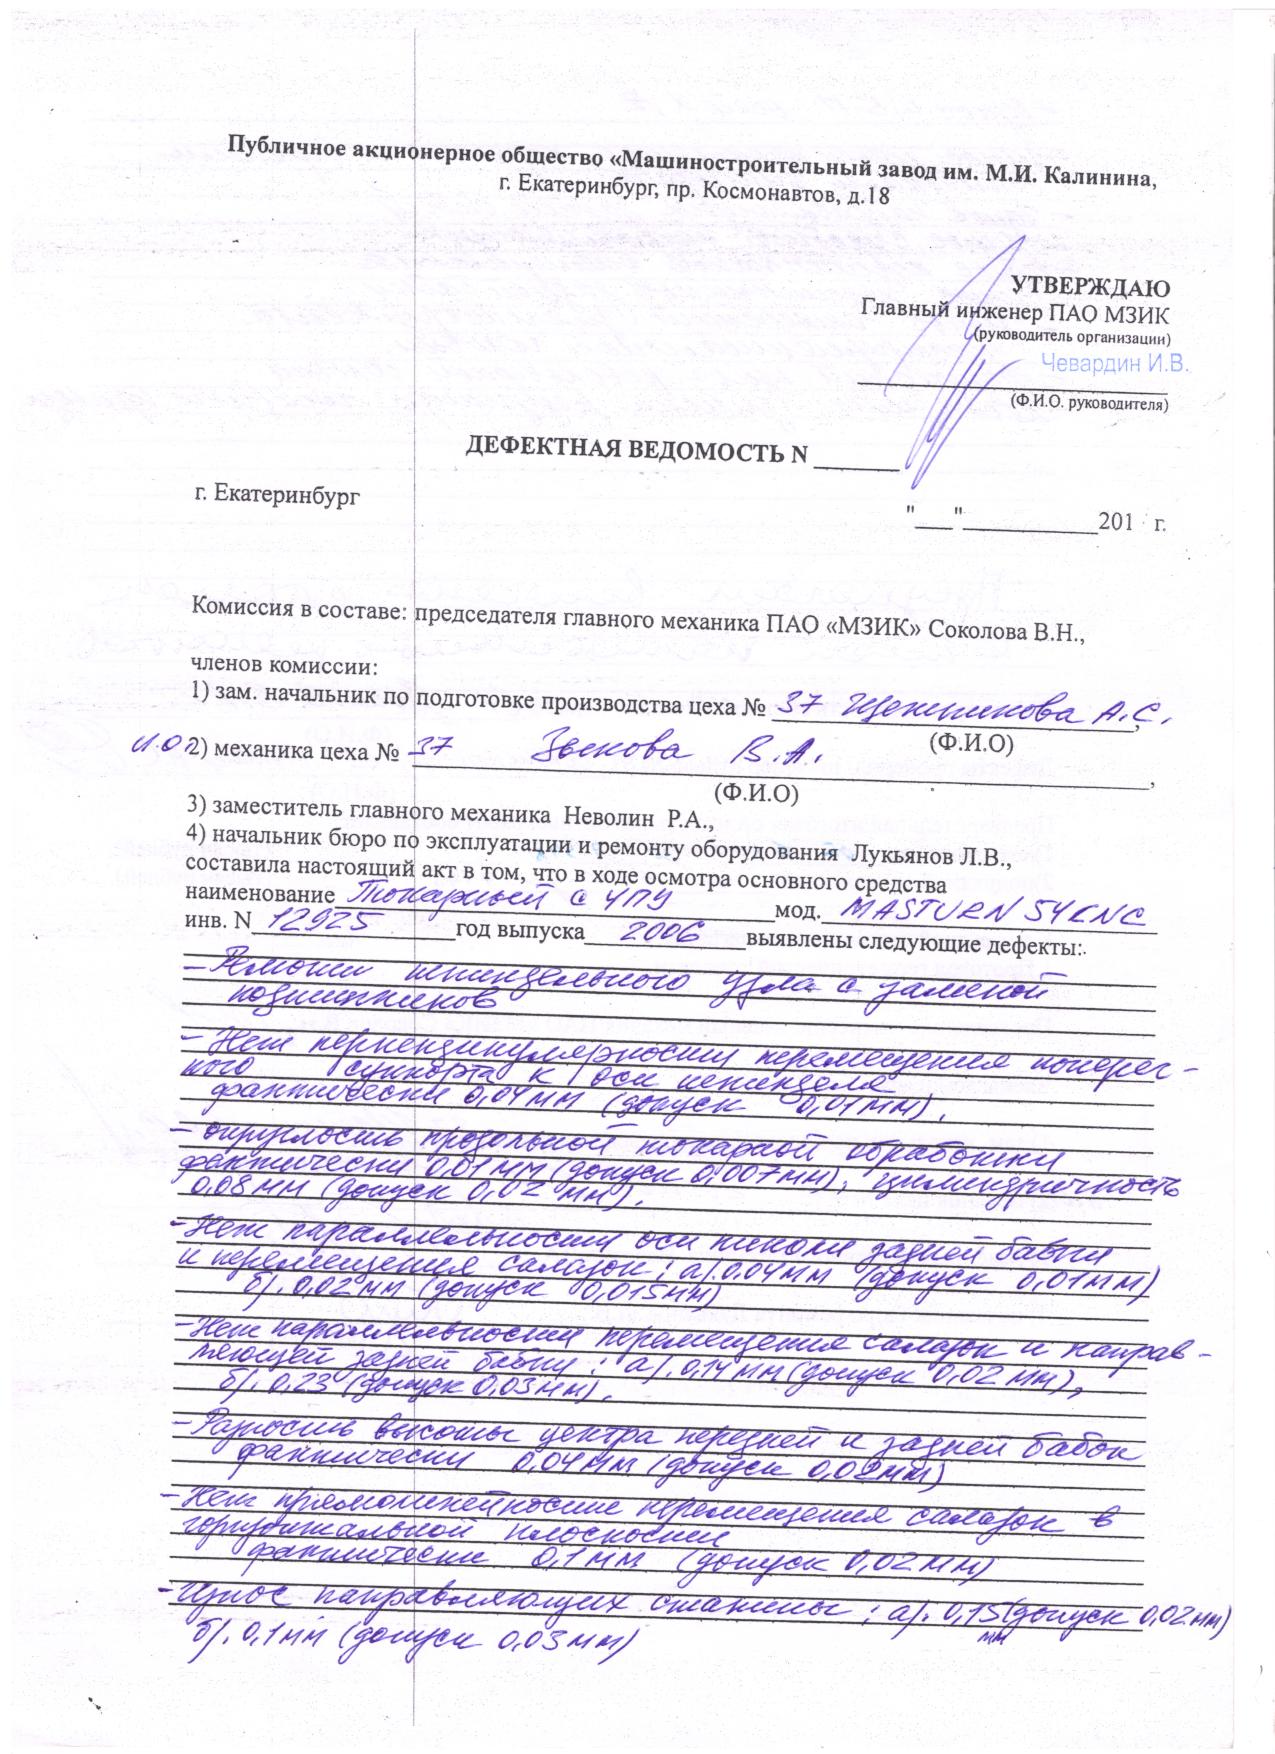 Публичное акционерное общество «Машиностроительный завод им. М.И. Калинина,
г. Екатеринбург, пр. Космонавтов, д.18
УТВЕРЖДАЮ
Главный инженер ПАО МЗИК
(руководитель организации)
Чевардин И.В.
(Ф.И.О. руководителя)
ДЕФЕКТНАЯ ВЕДОМОСТЬ N ______
г. Екатеринбург
"___"___________201 г.
Комиссия в составе: председателя главного механика ПАО «МЗИК» Соколова В.Н.,
членов комиссии:
1) зам. начальник по подготовке производства цеха № 37 А.С.,
(Ф.И.О)
И.О. 2) механика цеха № 37 Зыкова В.А.,
(Ф.И.О)
3) заместитель главного механика Неволин Р.А.,
4) начальник бюро по эксплуатации и ремонту оборудования Лукьянов Л.В.,
составила настоящий акт в том, что в ходе осмотра основного средства
наименование Токарный с ЧПУ мод. MASTURN 54CNC
инв. N 12925 год выпуска 2006 выявлены следующие дефекты:
- Ремонт шпиндельного узла с заменой
подшипников
- Нет перпендикулярности перемещения попереч-
ного суппорта к оси шпинделя
фактически 0,04мм (допуск 0,01мм).
- округлость продольной токарной обработки
фактически 0,01мм (допуск 0,007мм); цилиндричность
0,08мм (допуск 0,02 мм).
- Нет параллельности оси пиноли задней бабки
и перемещения салазок: а). 0,04мм (допуск 0,01мм)
б). 0,02мм (допуск 0,015мм)
- Нет параллельности перемещения салазок и направ-
ляющей задней бабки: а). 0,14мм (допуск 0,02 мм),
б). 0,23 (допуск 0,03мм).
- Разность высоты центра передней и задней бабок
фактически 0,04мм (допуск 0,02мм)
- Нет прямолинейности перемещения салазок в
горизонтальной плоскости
фактически 0,1мм (допуск 0,02мм)
- Износ направляющих станины: а). 0,15 мм (допуск 0,02мм)
б). 0,1мм (допуск 0,03мм)